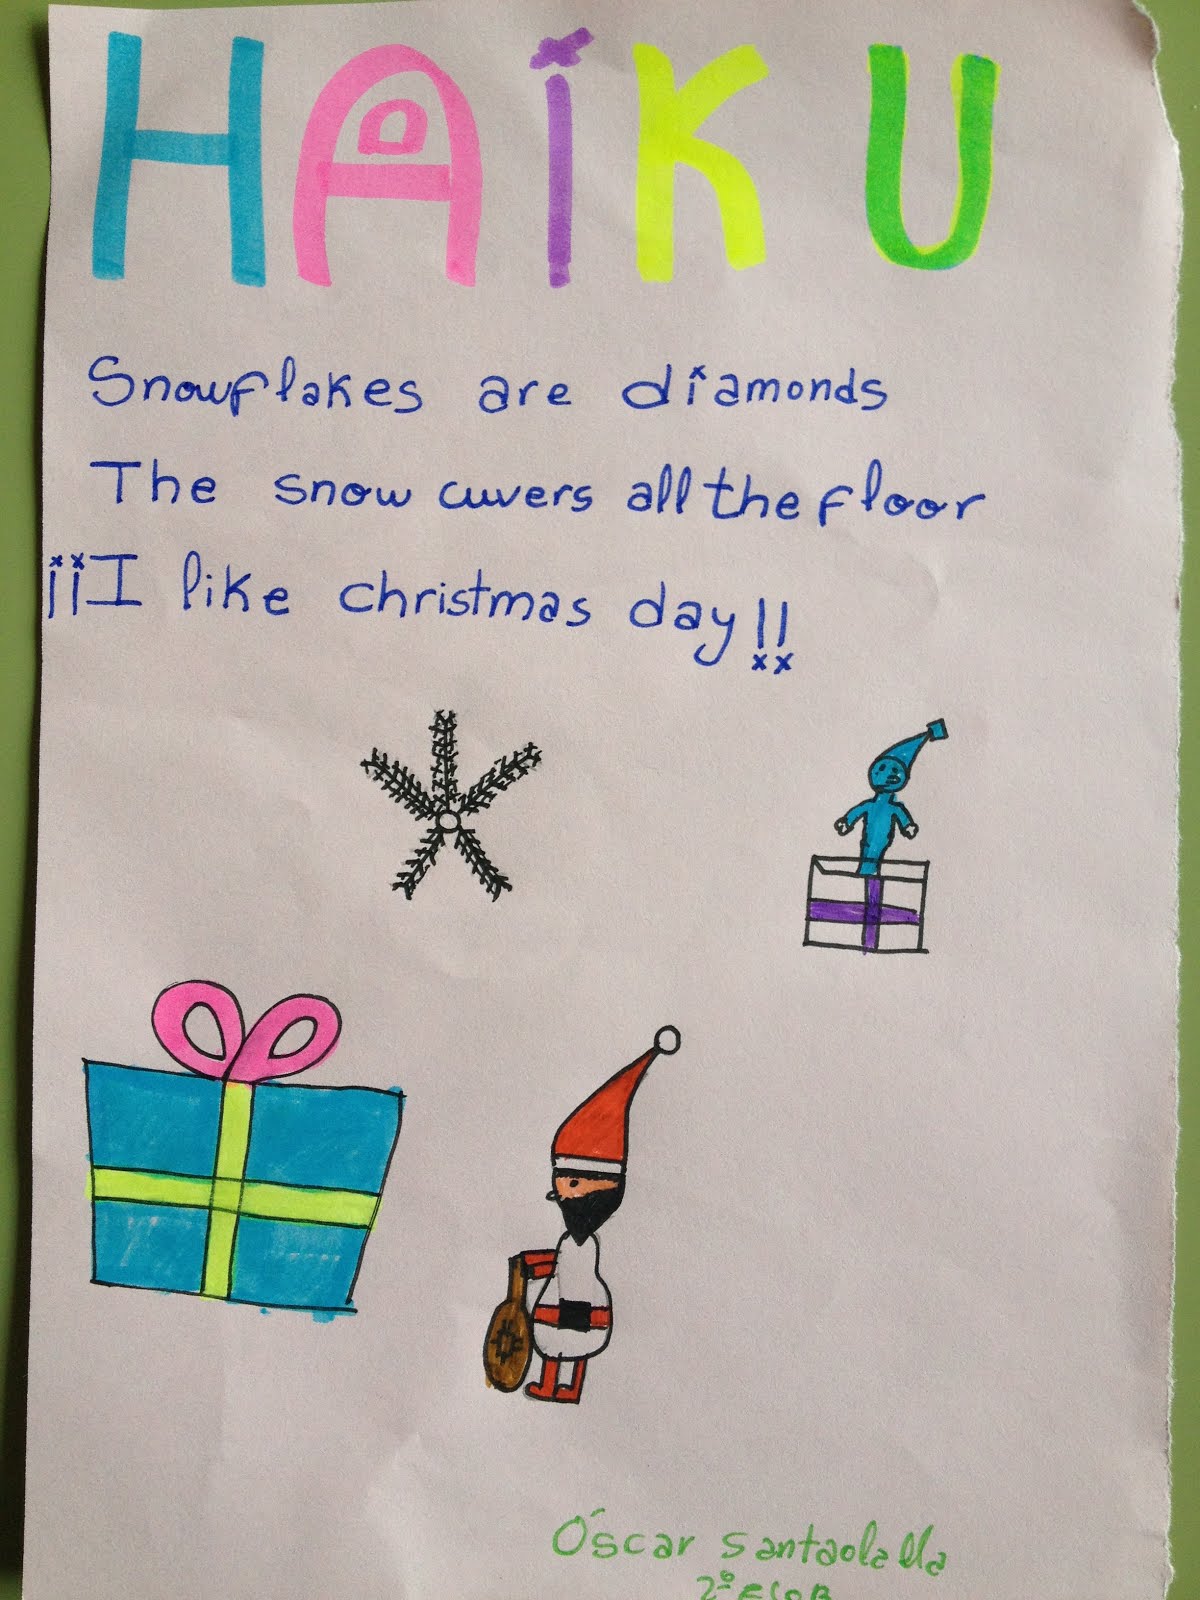 HAIKU
Snowflakes are diamonds
The snow cuvers all the floor
¡¡I like christmas day!!
Óscar Santaolalla
2º